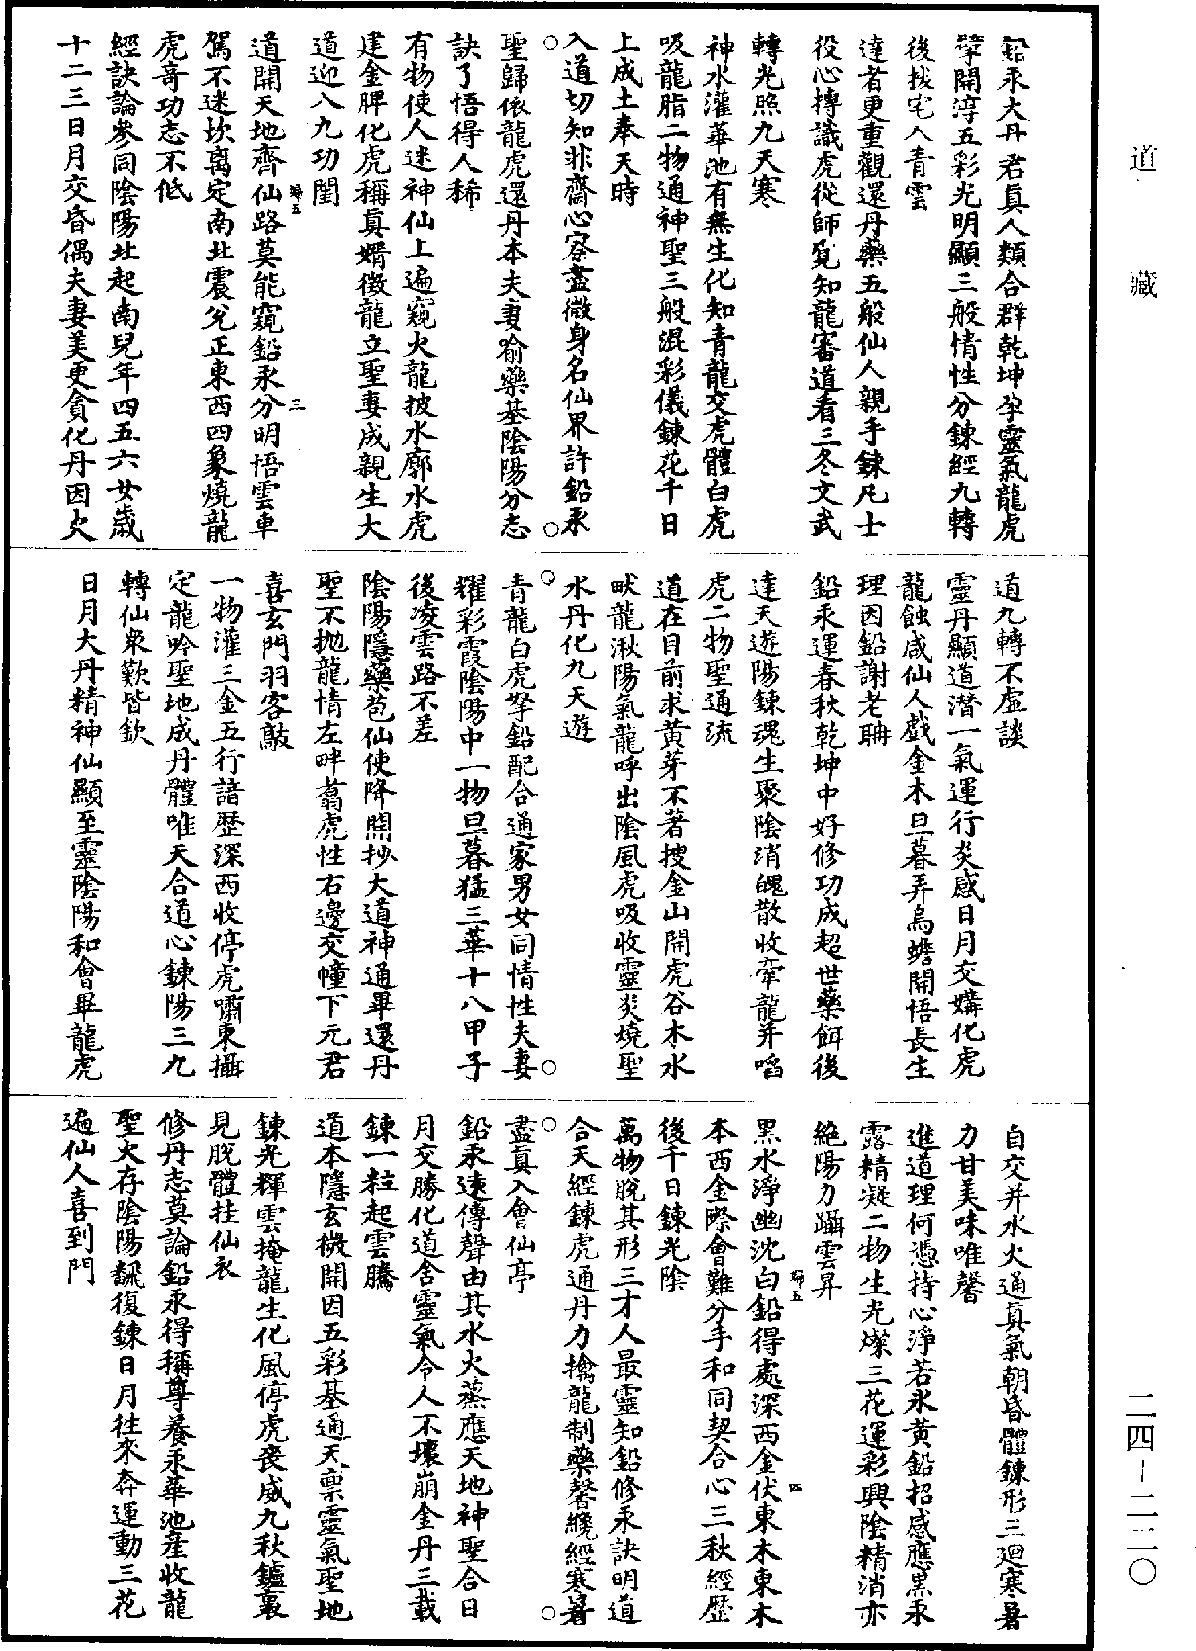 道藏
鉛汞大丹君真人類合群乾坤孕靈氣龍虎
擘開淳五彩光明顯三般情性分鍊經九轉
後拔宅入青雲
達者更重觀還丹藥五般仙人親手鍊凡士
役心摶識虎從師覓知龍審道看三冬文武
轉光照九天寒
神水灌華池有無生化知青龍交虎體白虎
吸龍脂二物通神聖三般混彩儀鍊花千日
上成土奉天時
入道切知非齋心密盡微身名仙界許鉛汞
聖歸依龍虎還丹本夫妻喻藥基陰陽分志
訣了悟得人稀
有物使人迷神仙上遍窺火龍披水廓水虎
建金脾化虎稱真婿徵龍立聖妻成親生大
道迎八九功閨
道開天地齊仙路莫能窺鉛汞分明悟雲車
駕不迷坎离定南北震兌正東西四象燒龍
虎奇功志不低
經訣論參同陰陽北起南兒年四五六女歲
十二三日月交昏偶夫妻美更貪化丹因火
婦五
三
道九轉不虛談
靈丹顯道潛一氣運行炎感日月交媾化虎
龍蝕咸仙人戲金木旦暮弄烏蟾開悟長生
理因鉛謝老聃
鉛汞運春秋乾坤中好修功成超世藥餌後
達天遊陽鍊魂生聚陰消魄散收牽龍并啗
虎二物聖通流
道在目前求黃芽不著搜金山開虎谷木水
畎龍湫陽氣龍呼出陰風虎吸收靈炎燒聖
水丹化九天遊
青龍白虎孥鉛配合通家男女同情性夫妻
耀彩霞陰陽中一物旦暮猛三華十八甲子
後凌雲路不差
陰陽隱藥苞仙使降開抄大道神通畢還丹
聖不拋龍情左畔翥虎性右邊交幢下元君
喜玄門羽客敲
一物灌三金五行諳歷深西收停虎嘯東攝
定龍吟聖地成丹體唯天合道心鍊陽三九
轉仙衆歎皆欽
日月大丹精神仙顯至靈陰陽和會畢龍虎
自交并水火通真氣朝昏體鍊形三迴寒暑
力甘美味唯馨
進道理何憑持心淨若氷黃鉛招感應黑汞
露精凝二物生光燦三花運彩興陰精消亦
絕陽力躡雲昇
黑水淨幽沈白鉛得處深西金伏東木東木
本西金際會難分手和同契合心三秋經歷
後千日鍊光陰
萬物脫其形三才人最靈知鉛修汞訣明道
合天經鍊虎通丹力擒龍制藥馨纔經寒暑
盡真入會仙亭
鉛汞遠傳聲由其水火蒸應天地神聖合日
月交勝化道含靈氣令人不壞崩金丹三載
鍊一粒起雲騰
道本隱玄微開因五彩基通天禀靈氣聖地
鍊光輝雲掩龍生化風停虎喪威九秋鑪裏
見脫體挂仙衣
修丹志莫論鉛汞得稱尊養汞華池産收龍
聖火存陰陽飜復鍊日月往來奔運動三花
遍仙人喜到門
婦五
四
二四-二二〇